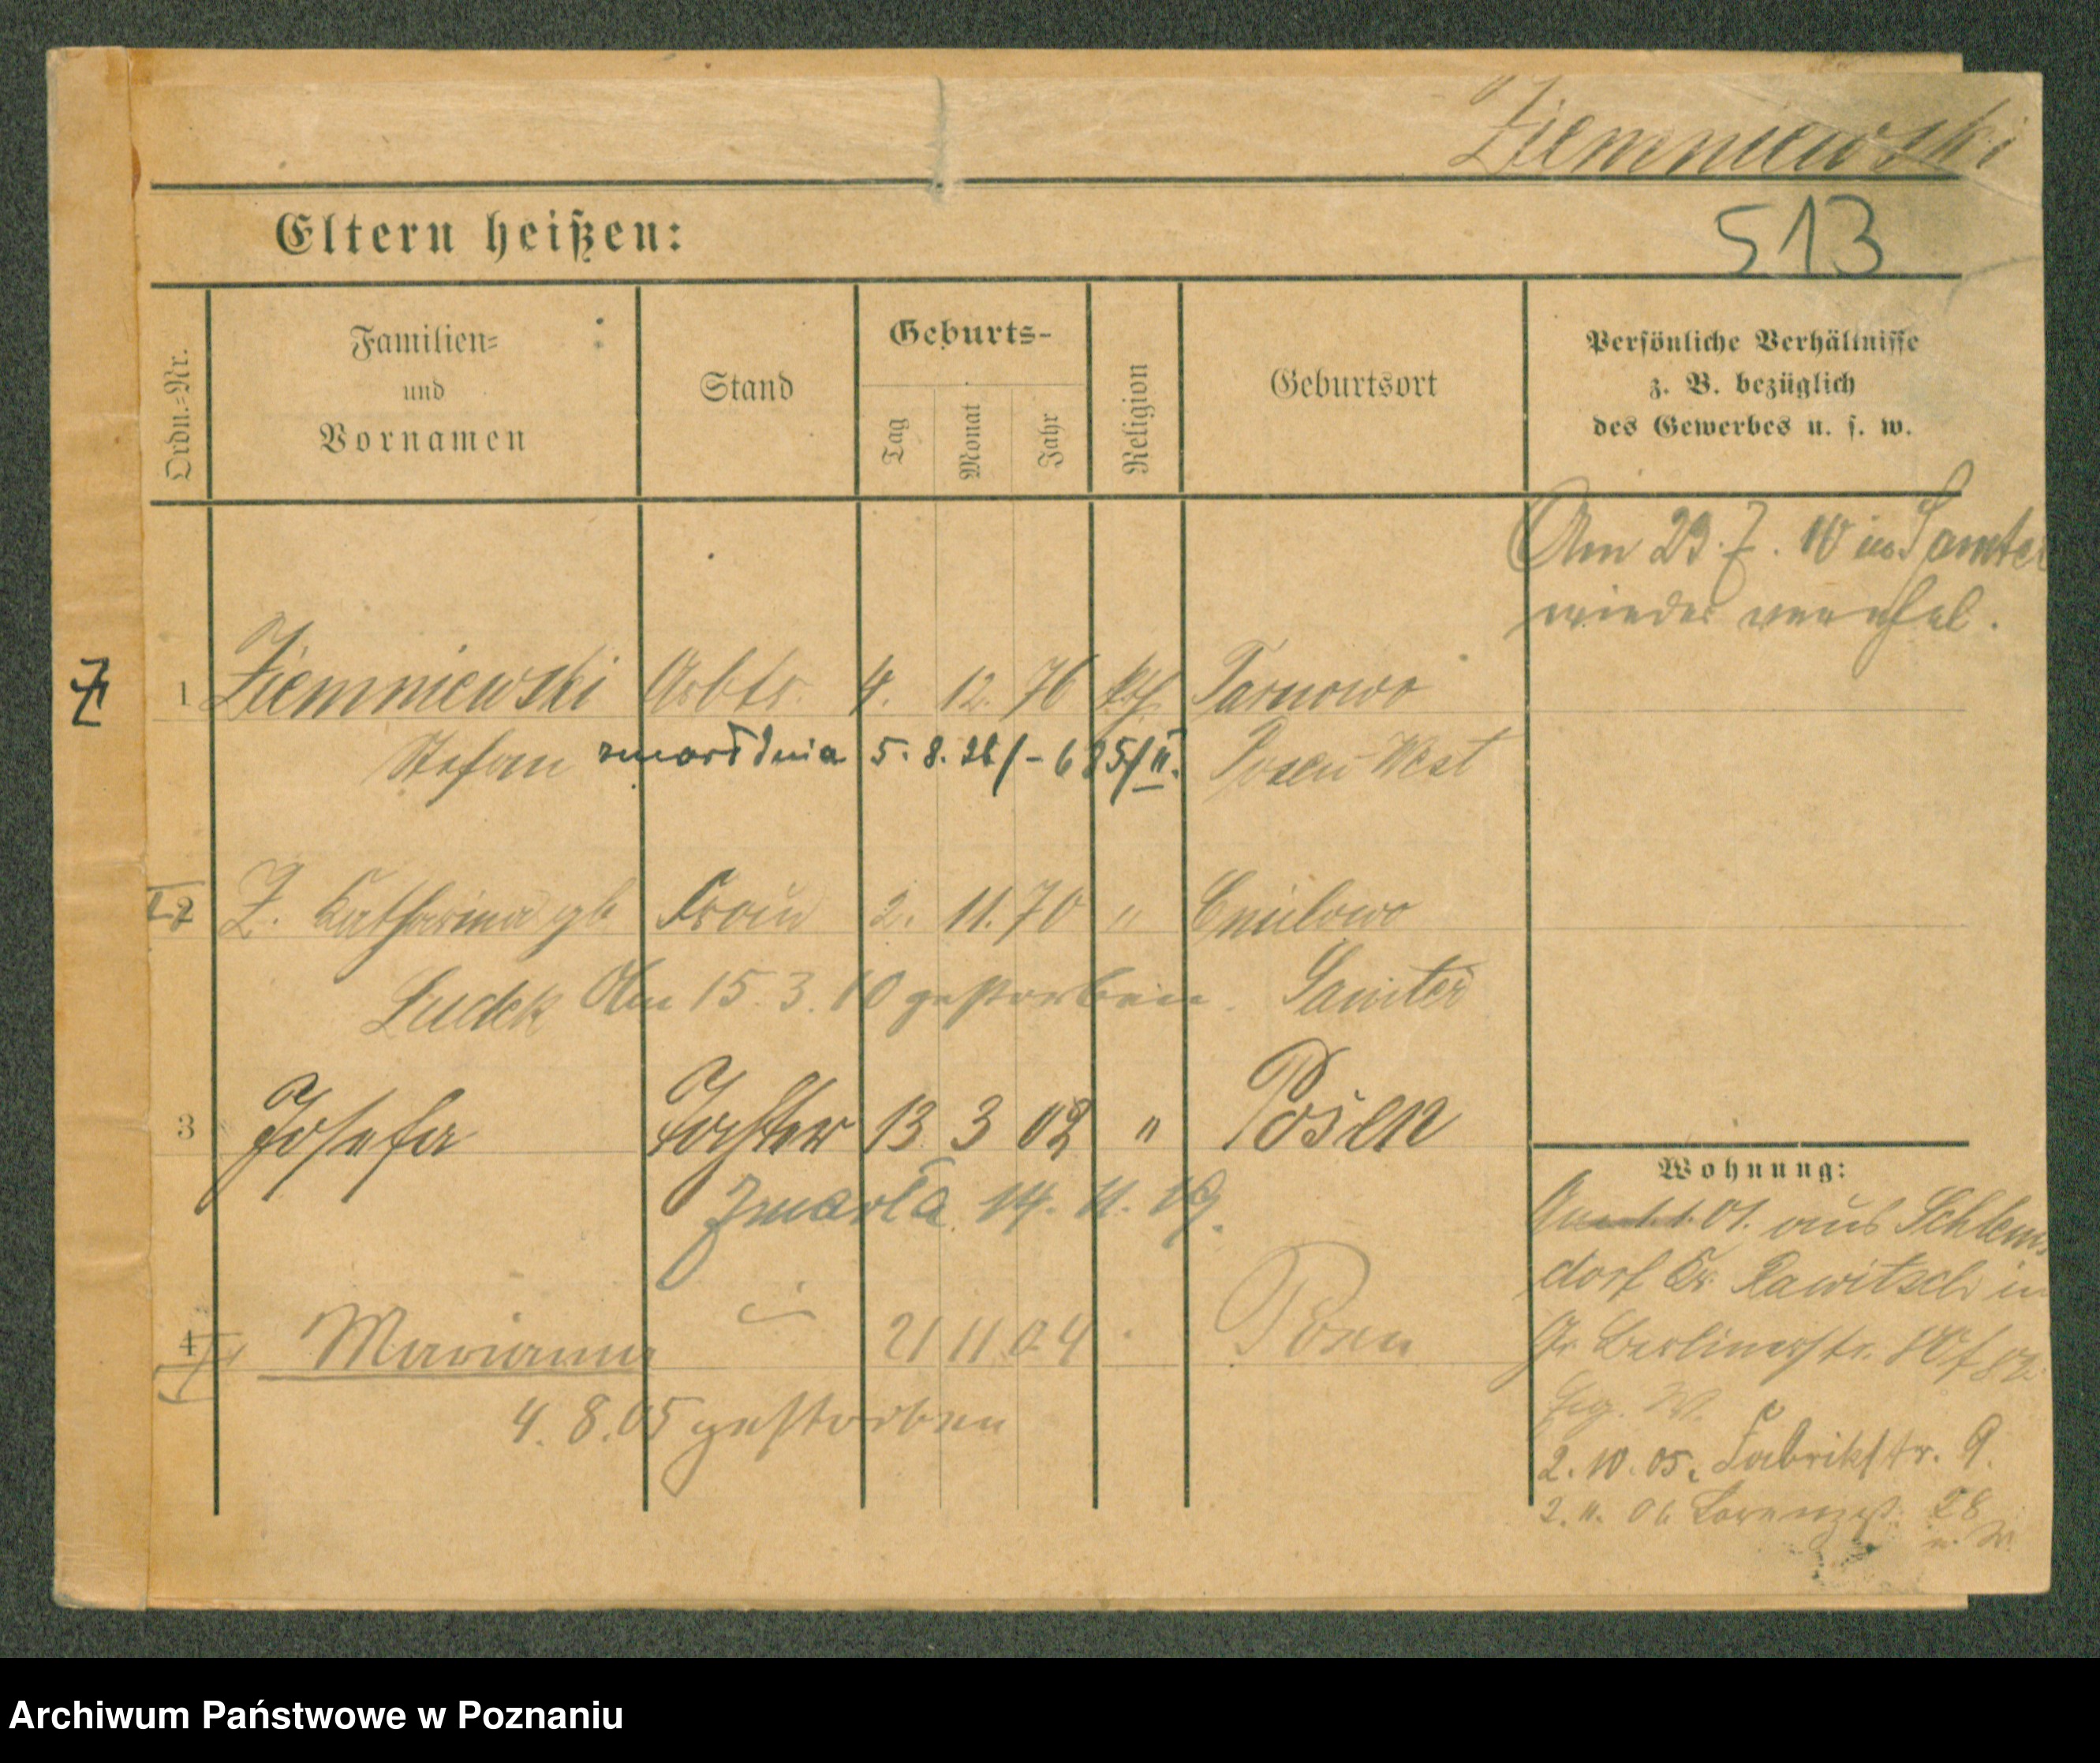 Ziemniewski
Eltern heißen:
513
Ordn.=Nr.
Familien=
und
Vornamen
Stand
Geburts-
Tag
Monat
Jahr
Religion
Geburtsort
Persönliche Verhältnisse
z. B. bezüglich
des Gewerbes u. s. w.
Am 23. 7. 10 in Samter
wieder verehel.
Z
1 Ziemniewski Arbtr. 4. 12. 76 kth Tarnowo
Stefan zmarł dnia 5. 8. 26/- 625/II. Posen West
2 Z. Katharina gb Frau 2. 11. 70 " Emilowo
Ludek Am 15. 3. 10 gestorben. Samter
3 Josefa Tochter 13 3 02 " Posen
Zmarła 14. 11. 19.
4 Marianna 21 11 04 Posen
4. 8. 05 gestorben
Wohnung:
01. aus Schlem
dorf Kr. Rawitsch in
Gr. Berlinerstr.
2. 10. 05. Fabrikstr. 9.
2. 11. 06 Lorenzst. 28
Archiwum Państwowe w Poznaniu